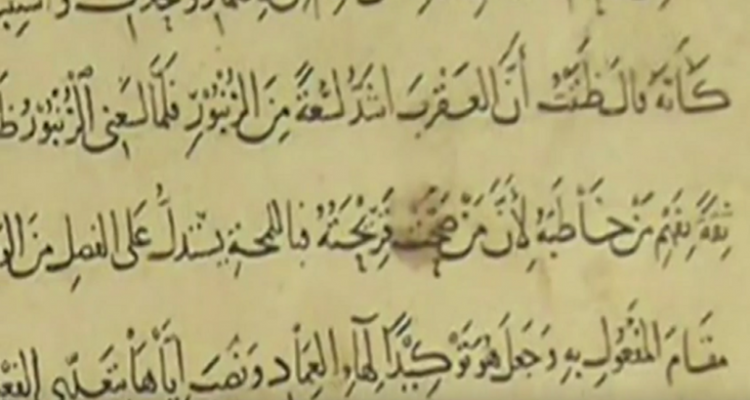 كَأَنَّهُ قَالَ ظَنَنْتُ أَنَّ العَقْرَبَ اشَدُّ لَسْعَةً مِنَ الزُّنْبُوْرِ فَلَمَّا لَسَعَنِي الزُّنْبُوْرُ
ثِقَةً بِفَهْمِ مَنْ خَاطَبَهُ لِأَنَّ مَنْ صَحَّتْ قَرِيْحَتُهُ فباللمحةِ يَسْتَدِلُّ عَلَى الفصلِ مِنَ
مَقَامَ المَفْعُولِ بِهِ وَجَعَلَ هُوَ تَوْكِيْدًا لِهَاءِ العِمَادِ وَنَصَبَ اِيَّاهَا بِتَعَدِّي